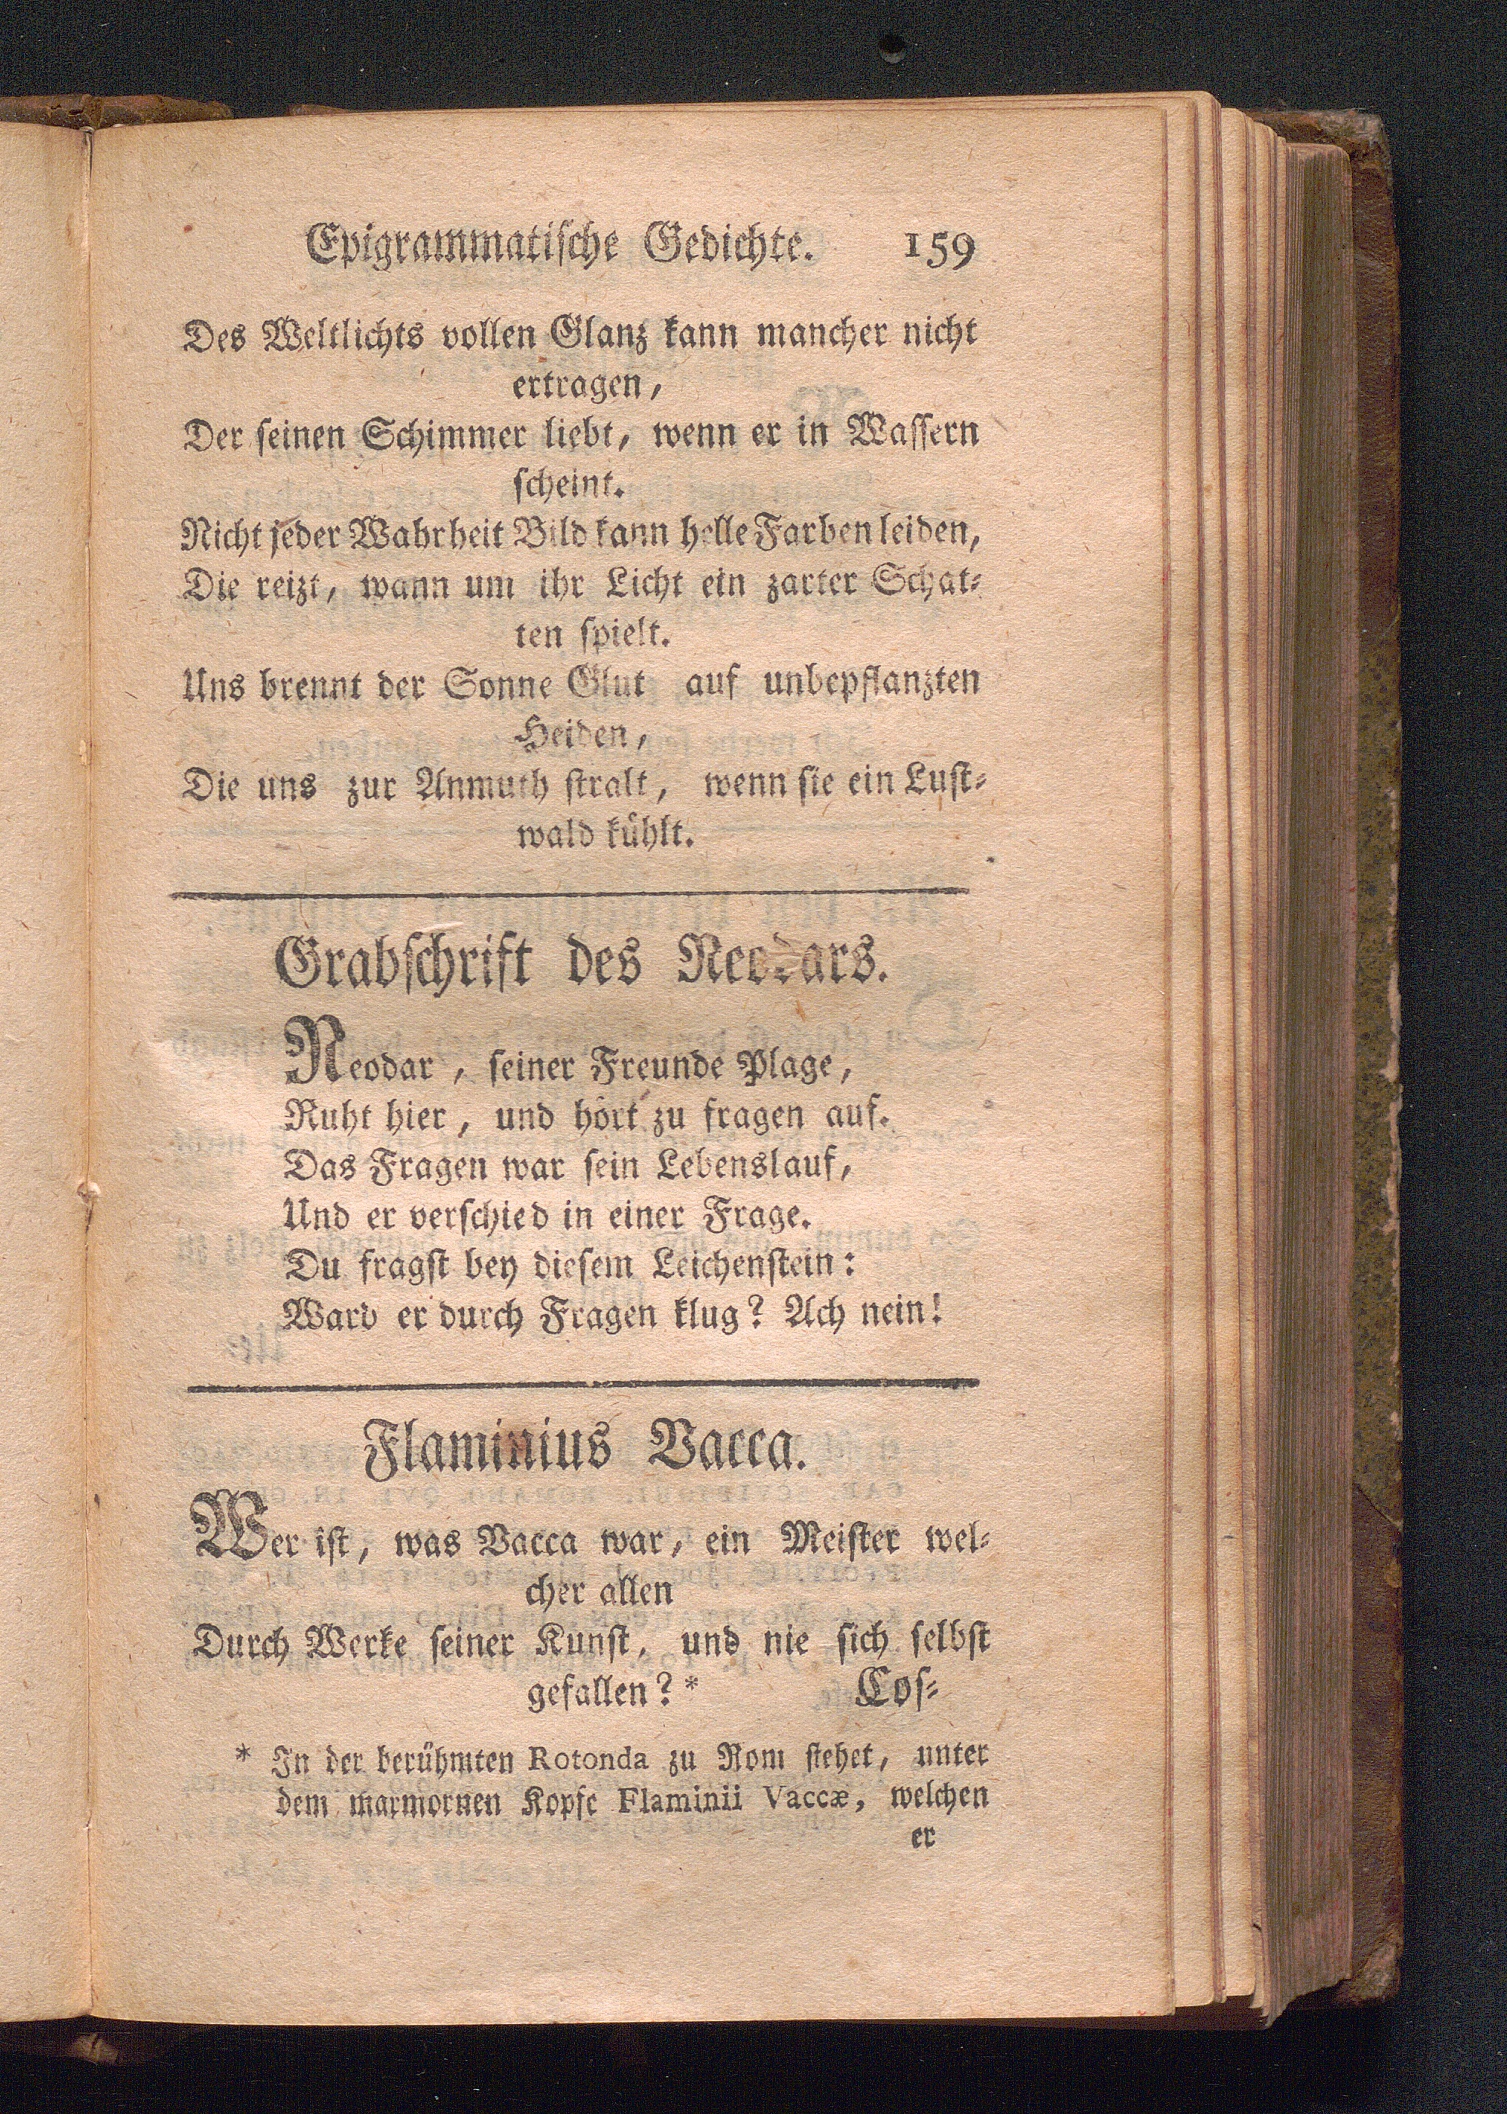 Epigrammatiſche Gedichte. 159
Des Weltlichts vollen Glanz kann mancher nicht
ertragen,
Der ſeinen Schimmer liebt, wenn er in Waſſern
ſcheint.
Nicht jeder Wahrheit Bild kann helle Farben leiden,
Die reizt, wann um ihr Licht ein zarter Schat⸗
ten ſpielt.
Uns brennt der Sonne Glut auf unbepflanzten
Heiden,
Die uns zur Anmuth ſtralt, wenn ſie ein Luſt⸗
wald kühlt.
Grabſchrift des Neodars.
Neodar, ſeiner Freunde Plage,
Ruht hier, und hört zu fragen auf.
Das Fragen war ſein Lebenslauf,
Und er verſchied in einer Frage.
Du fragſt bey dieſem Leichenſtein:
Ward er durch Fragen klug? Ach nein!
Flaminius Vacca.
Wer iſt, was Vacca war, ein Meiſter wel⸗
cher allen
Durch Werke ſeiner Kunſt, und nie ſich ſelbſt
gefallen? * Coſ⸗
* In der berühmten Rotonda zu Rom ſtehet, unter
dem marmornen Kopfe Flaminii Vaccæ, welchen
er